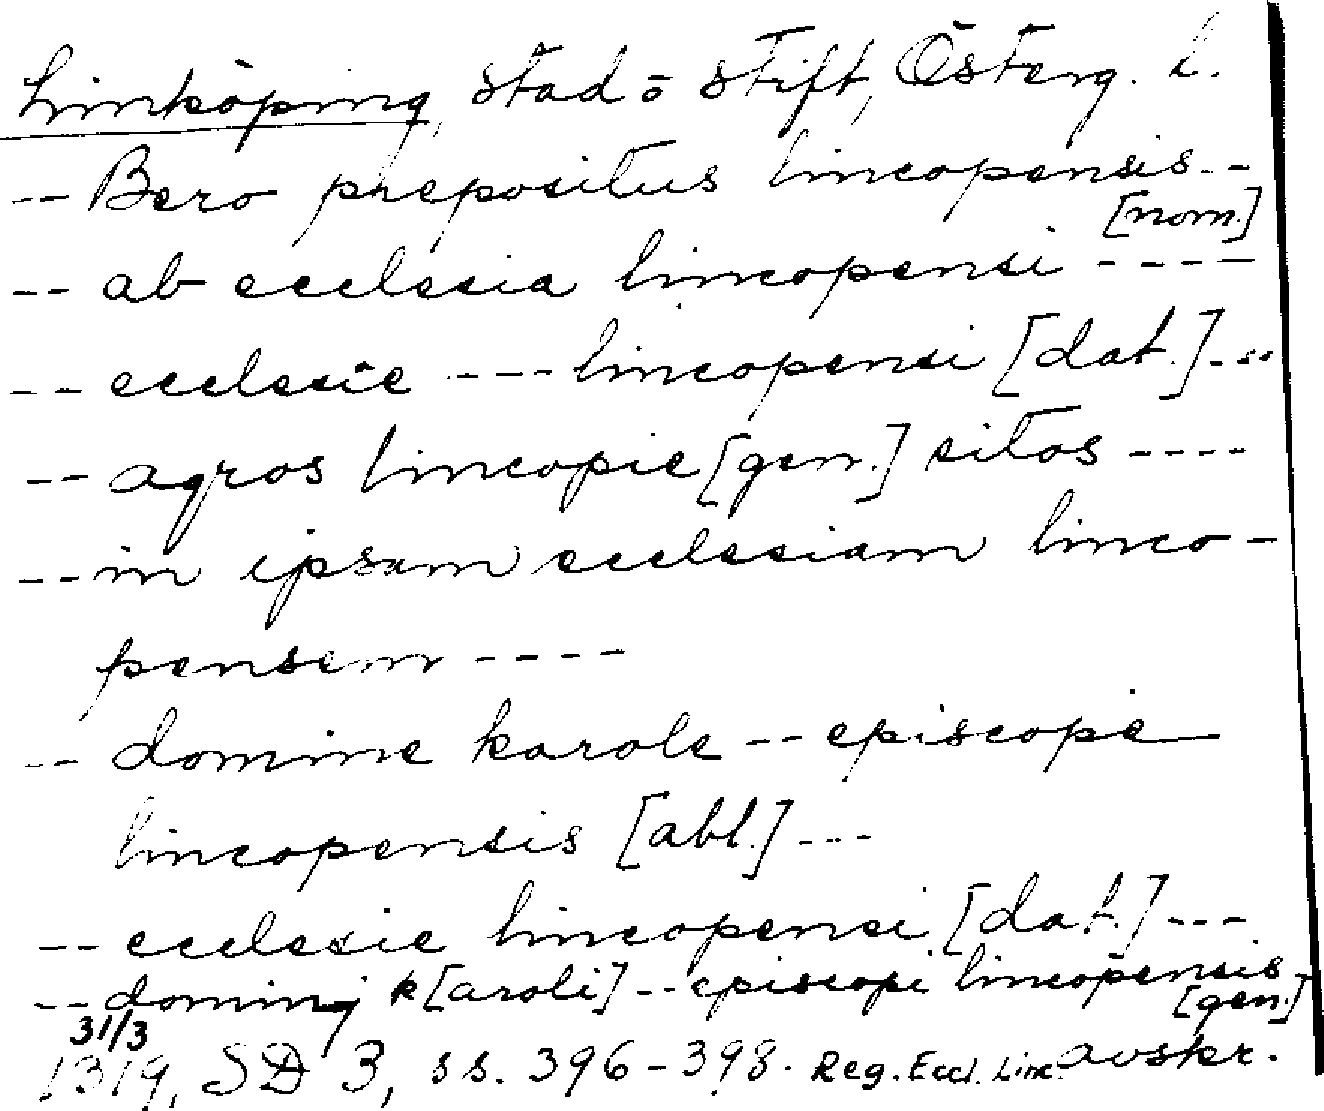 Linköping, stad o stift, Österg. l.
-- Bero prepositus lincopensis --
[nom.]
-- ab ecclesia lincopensi ----
-- ecclesie --- lincopensi [dat.] ---
-- agros lincopie [gen.] sitos ----
-- in ipsam ecclesiam linco-
pensem ----
-- domine karole -- episcope
lincopensis [abl.] ---
-- ecclesie lincopensi [dat.] ---
-- dominj k[aroli] -- episcopi lincopensis
[gen.]
31/3
1319, SD 3, ss. 396-398. Reg. Eccl. Linc. avskr.